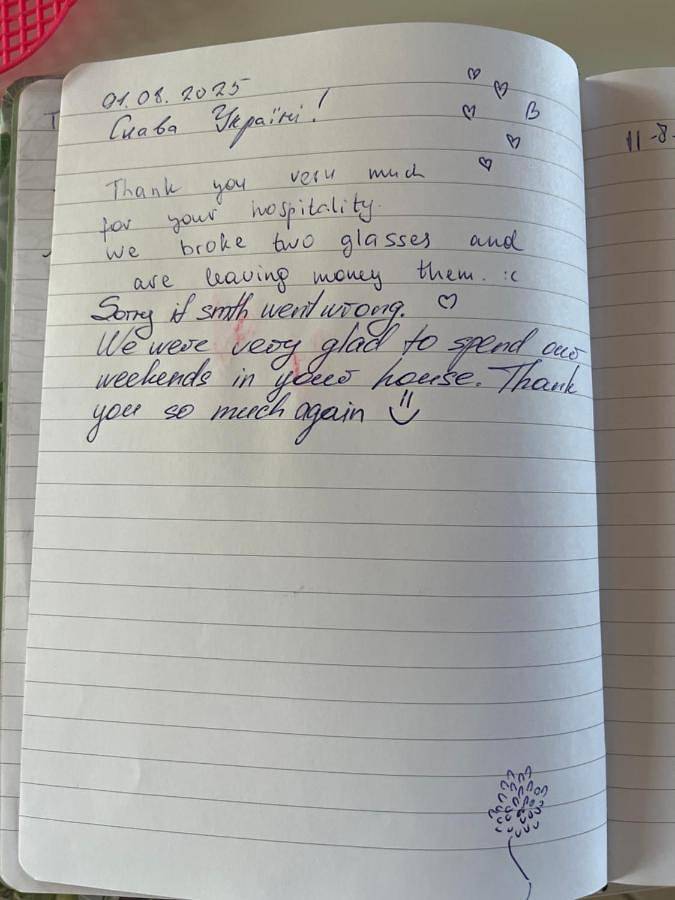 01.08.2025
Слава Україні!
Thank you very much
for your hospitality.
we broke two glasses and
are leaving money them. :c
Sorry if smth went wrong.
We were very glad to spend our
weekends in your house. Thank
you so much again
11-8-